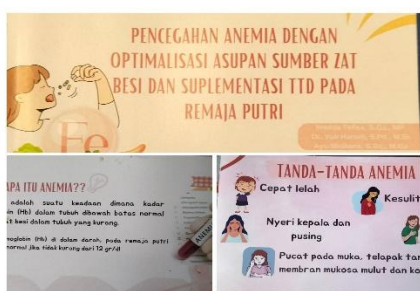 PENCEGAHAN ANEMIA DENGAN
OPTIMALISASI ASUPAN SUMBER ZAT
BESI DAN SUPLEMENTASI TTD PADA
REMAJA PUTRI
Fe
APA ITU ANEMIA??
adalah suatu keadaan dimana kadar
(Hb) dalam tubuh dibawah batas normal
besi dalam tubuh yang kurang.
(Hb) di dalam darah, pada remaja putri
normal jika tidak kurang dari 12 gr/dl
ANEM
TANDA-TANDA ANEMIA
Cepat lelah
Kesulit
Nyeri kepala dan
pusing
Pucat pada muka, telapak tan
membran mukosa mulut dan ku